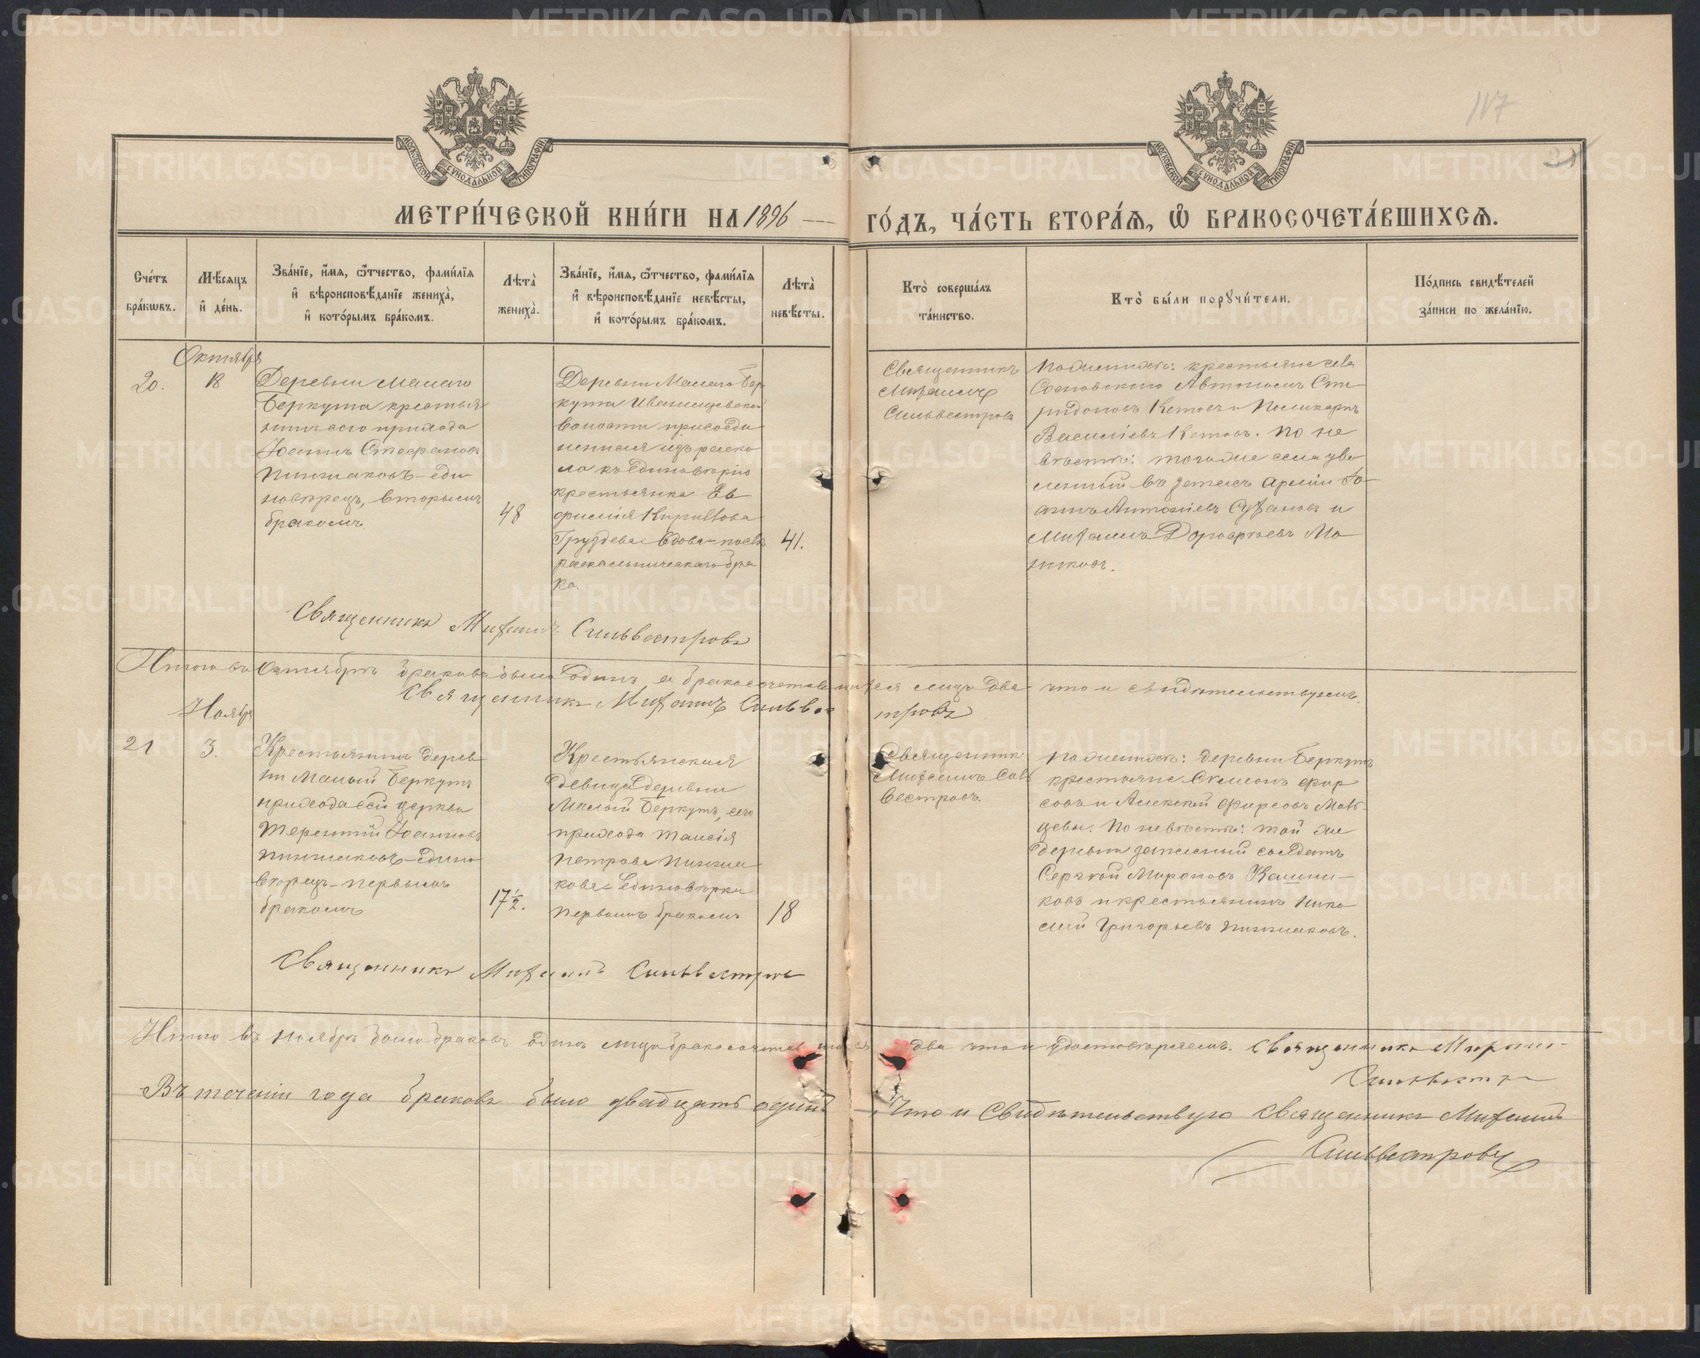 117
МЕТРИ́ЧЕСКОЙ КНИ́ГИ НА 1896 ГО́ДЪ, ЧА́СТЬ ВТОРА́Я, Ѽ БРАКОСОЧЕТА́ВШИХСЯ.
Сче́тъ
бра́кѡвъ.
Мѣ́сяцъ
и҆ де́нь.
Зва́нїе, и҆́мя, ѻ҆́тчество, фами́лїя
и҆ вѣроисповѣ́данїе жениха̀,
и҆ кото́рымъ бра́комъ.
Лѣта̀
жениха̀.
Зва́нїе, и҆́мя, ѻ҆́тчество, фами́лїя
и҆ вѣроисповѣ́данїе невѣ́сты,
и҆ кото́рымъ бра́комъ.
Лѣта̀
невѣ́сты.
Кто̀ соверша́лъ
та́инство.
Кто̀ бы́ли порꙋчи́тели.
По́дпись свидѣ́телей
за́писи по жела́нїю.
Октября
20.
18
Деревни Малаго
Беркута крестья
нинъ сего прихода
Іоаннъ Стефановъ
Пинжаковъ - еди
новѣрецъ, вторымъ
бракомъ
48
Деревни Малаго Бер
кута Иванищевской
волости присоеди
ненная изъ раско
ла къ единовѣрію
крестьянка Ев
фимія Кириллова
Груздева - вдова послѣ
раскольническаго бра
ка.
41.
Священникъ
Михаилъ
Сильвестровъ
По женихѣ: крестьяне села
Сосновскаго Автономъ Спи
ридоновъ Кетовъ и Поликарпъ
Василіевъ Кетовъ. По не
вѣстѣ: того же села уво
ленный въ запасъ арміи
Антоніевъ и
Михаилъ Дорофеевъ
Священникъ Михаилъ Сильвестровъ
Итого въ Октябрѣ браковъ было одинъ, а бракосочетавшихся лицъ два что и свидѣтельствуемъ.
Священникъ Михаилъ Сильвестровъ
Ноября
21
3.
Крестьянинъ дерев
ни Малый Беркутъ
прихода сей церкви
Терентій Іоанновъ
Пинжаковъ - едино
вѣрецъ - первымъ
бракомъ
17½.
Крестьянская
девица деревни
Малый Беркутъ, сего
прихода Таисія
Петрова Пинжа
кова - единовѣрка
первымъ бракомъ
18
Священникъ
Михаилъ Силь
вестровъ.
По женихѣ: деревни Беркутъ
крестьяне Симеонъ Фир
совъ и Алексѣй Фирсовъ
По невѣстѣ: той же
деревни запасный солдатъ
Сергѣй Мироновъ Кашни-
ковъ и крестьянинъ Нико
лай Григорьевъ Пинжаковъ.
Священникъ Михаилъ Сильвестровъ
Итого въ Ноябрѣ было браковъ одинъ лицъ бракосочетавшихся два что и удостовѣряемъ. Священникъ Михаилъ
Сильвестровъ
Въ теченіи года браковъ было двадцать одинъ Что и свидѣтельствую Священникъ Михаилъ
Сильвестровъ
METRIKI.GASO-URAL.RU